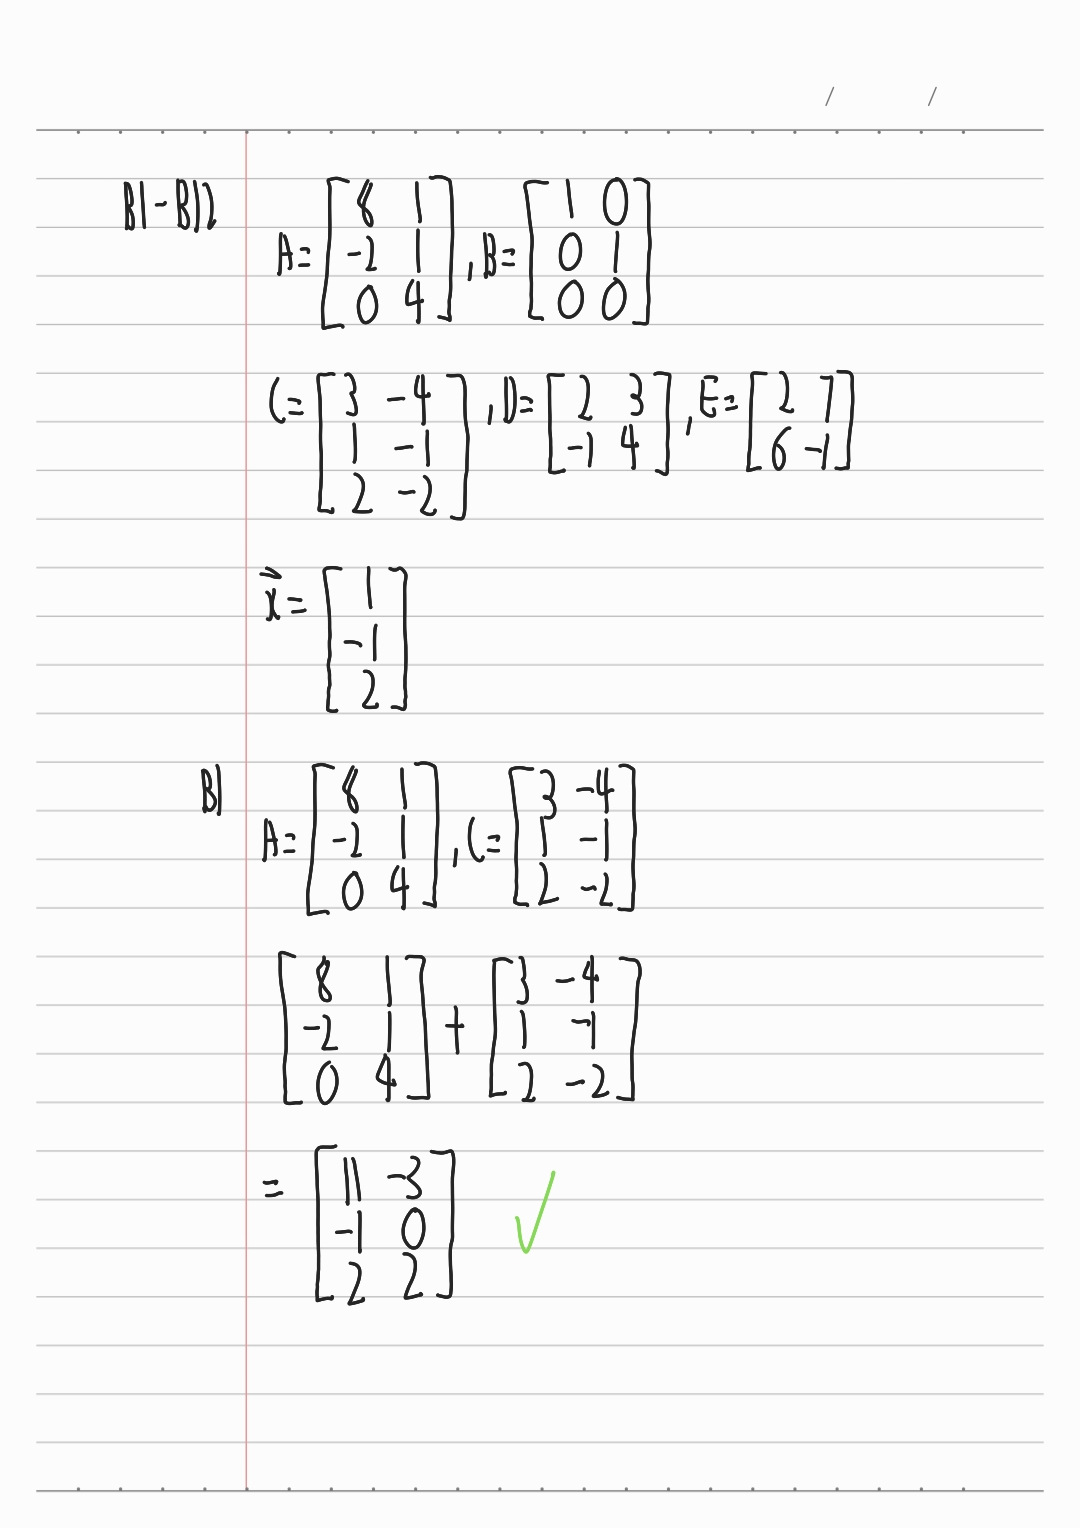 B1-B12
A = [8 1; -2 1; 0 4], B = [1 0; 0 1; 0 0]
C = [3 -4; 1 -1; 2 -2], D = [2 3; -1 4], E = [2 7; 6 -1]
x⃗ = [1; -1; 2]
B1
A = [8 1; -2 1; 0 4], C = [3 -4; 1 -1; 2 -2]
[8 1; -2 1; 0 4] + [3 -4; 1 -1; 2 -2]
= [11 -3; -1 0; 2 2] ✓